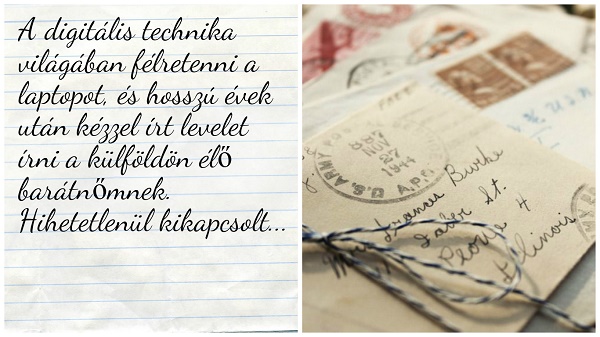 A digitális technika
világában félretenni a
laptopot, és hosszú évek
után kézzel írt levelet
írni a külföldön élő
barátnőmnek.
Hihetetlenül kikapcsolt...
FREE
U.S. ARMY
887
NOV
27
1944
A.P.O.
Frances Burke
Faber St.
Peoria 4
Illinois